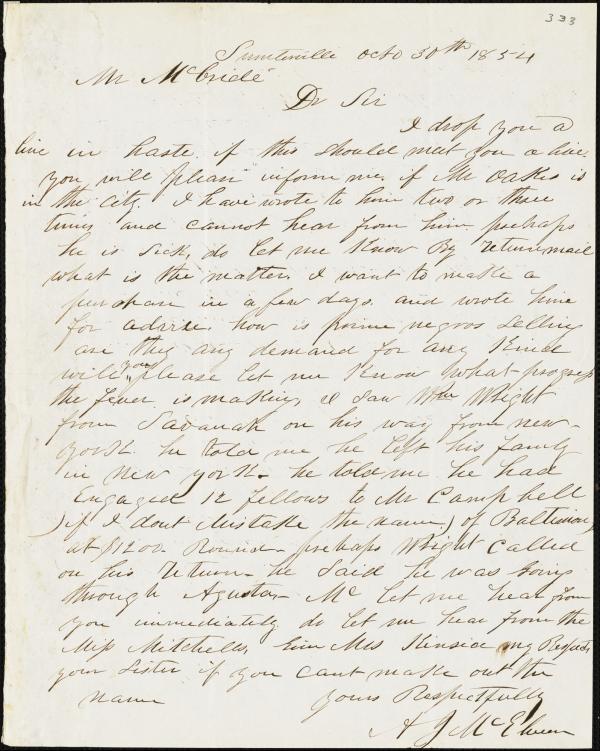 333
Sumterville Octo 30th 1854
Mr McBride
Dr Sir
I drop you a
line in haste. if this should meet you alive,
you will please inform me, if Mr Oakes is
in the City. I have wrote to him two or three
times and cannot hear from him. perhaps
he is sick, do let me Know By return mail
what is the matter. I want to make a
purchase in a few days. and wrote him
for advise. how is prime negros selling
are they any demand for any Kind
will you please let me Know what progress
the fever is making, I saw Wm Wright
from Savanah on his way from new-
york. he told me he left his family
in new york. he told me he had
Engaged 12 fellows to Mr Campbell
(if I dont Mistake the name) of Baltimore,
at $1200. Round. perhaps Wright called
on his return. he said he was going
through Agusta. Mc let me hear from
you immediately do let me hear from the
Miss Mitchells, Give Mrs my Respects,
your sister if you cant make out the
name
yours Respectfully
A J McElveen